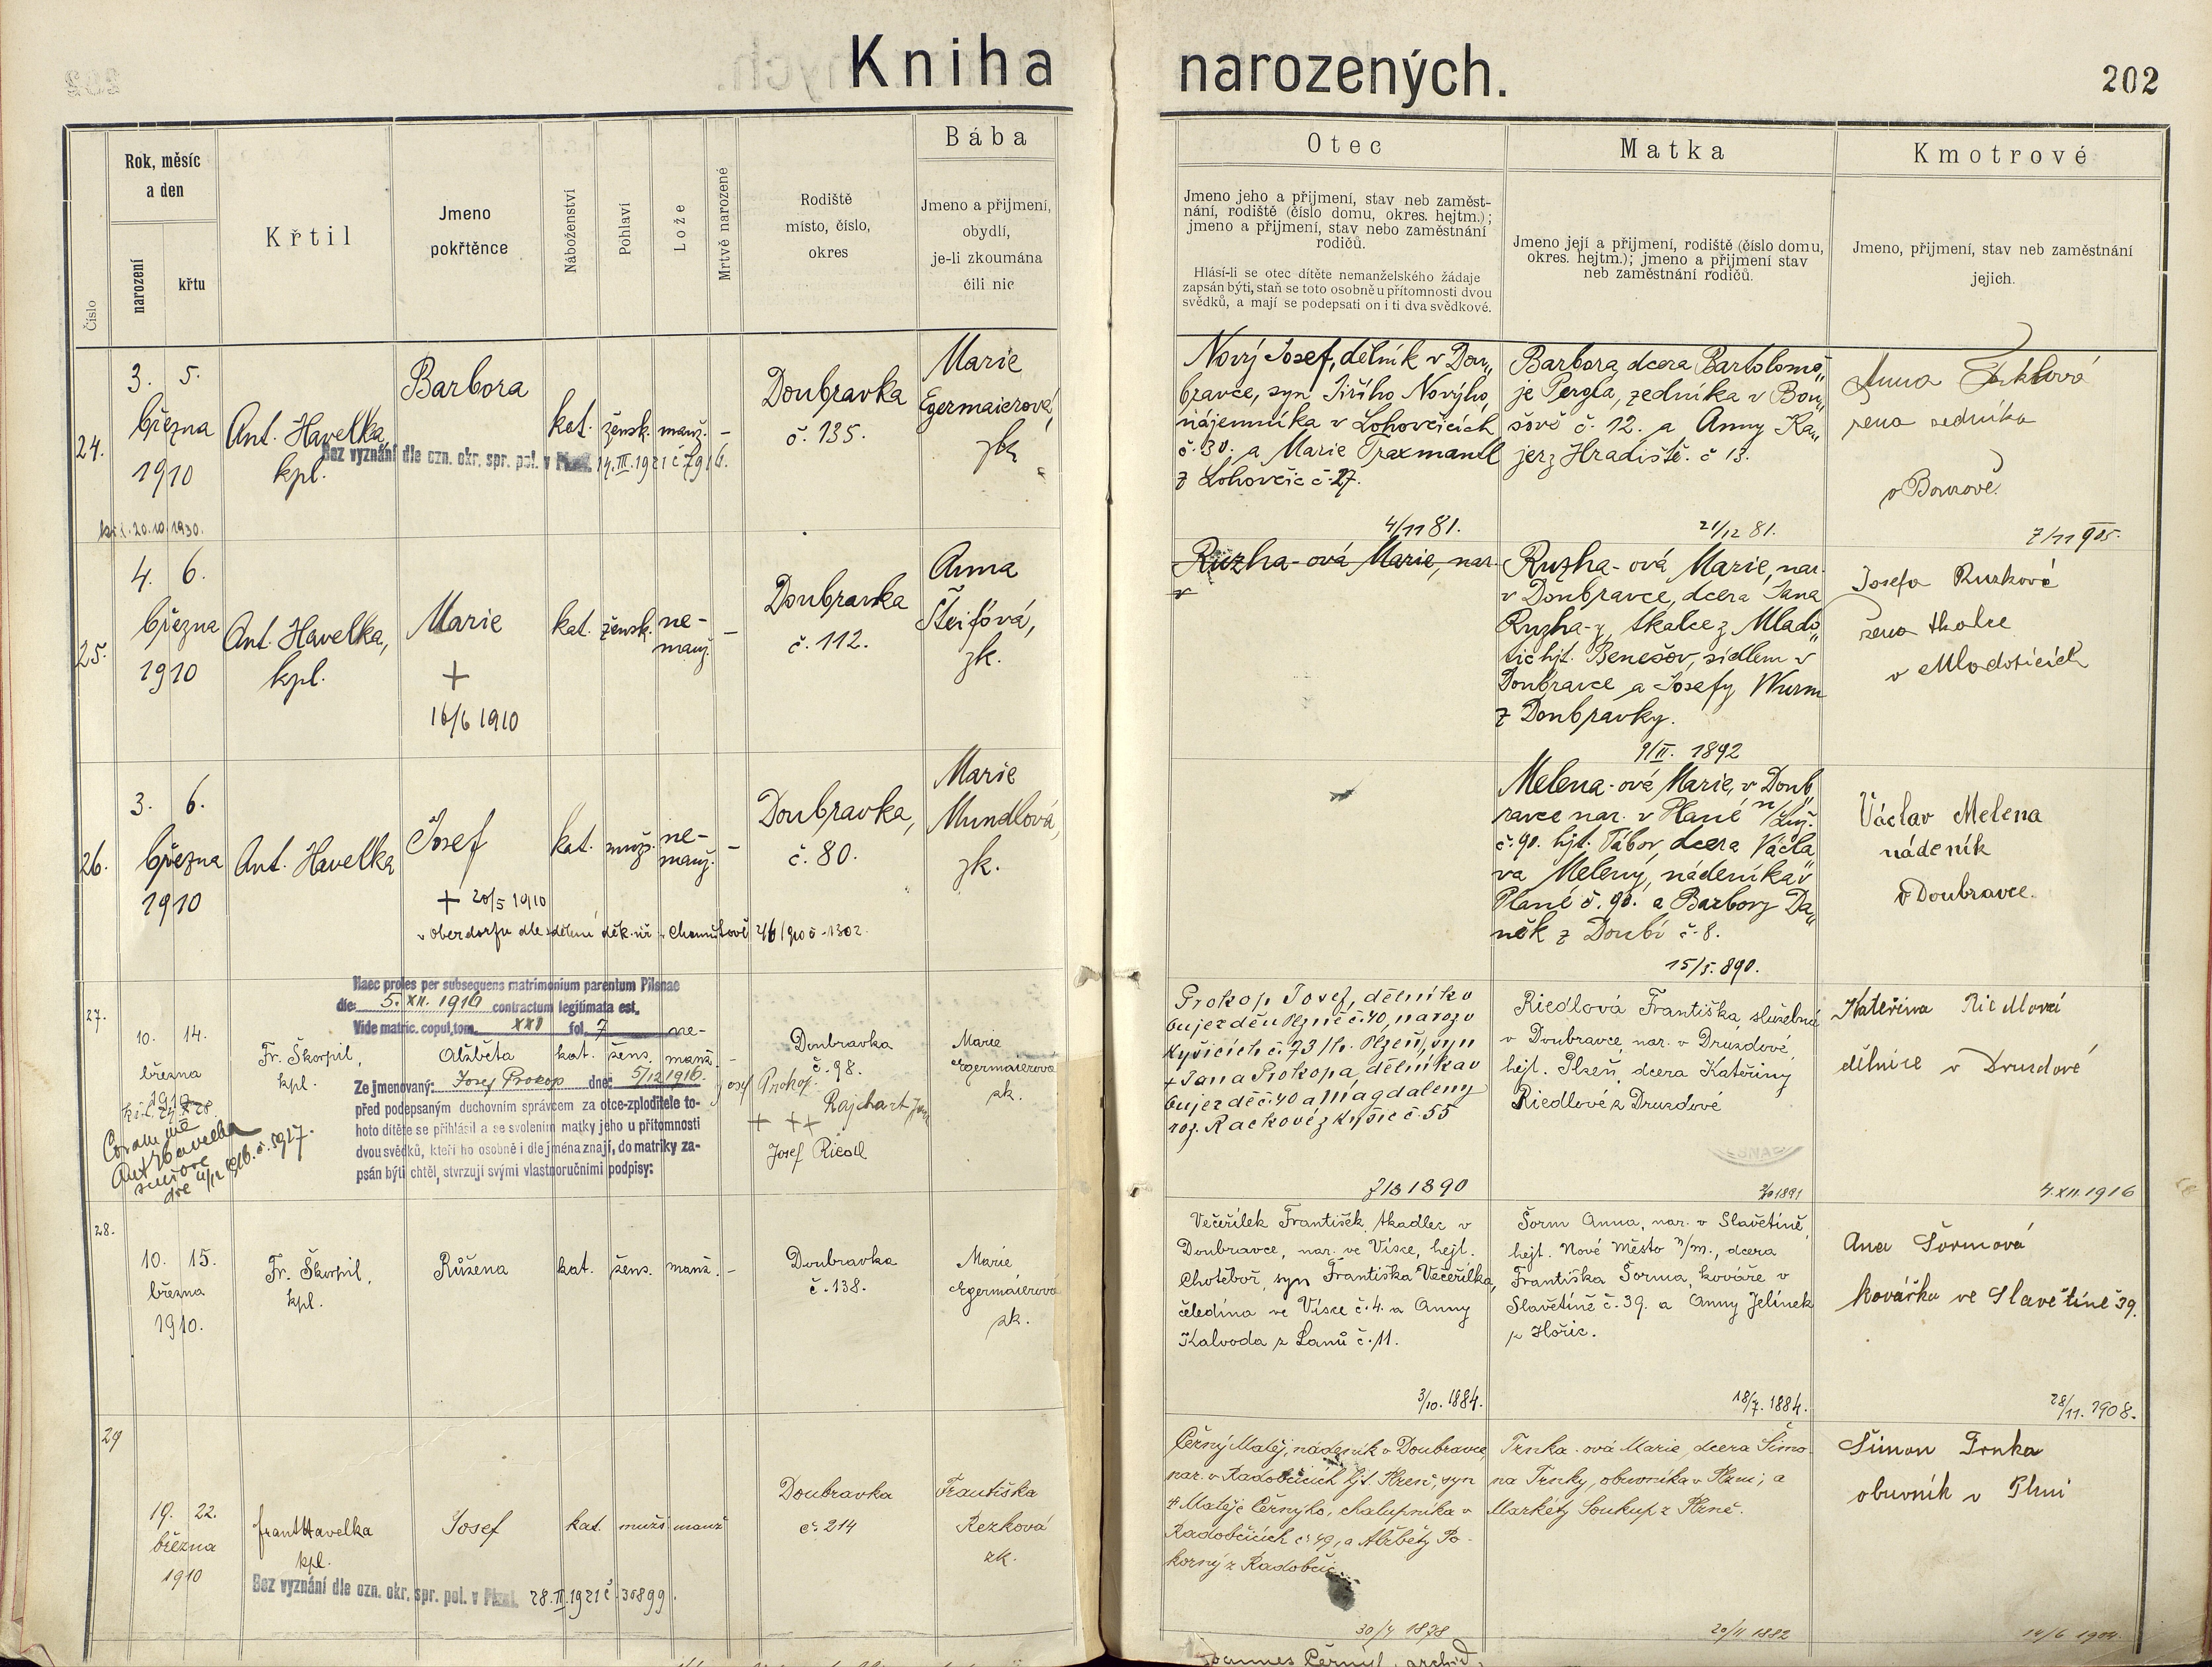 Kniha narozených.
202
Číslo
Rok, měsíc
a den
narození
křtu
Křtil
Jmeno
pokřtěnce
Náboženství
Pohlaví
Lože
Mrtvě narozené
Rodiště
místo, číslo,
okres
Bába
Jmeno a přijmení,
obydlí,
je-li zkoumána
čili nic
Otec
Jmeno jeho a přijmení, stav neb zaměst-
nání, rodiště (číslo domu, okres. hejtm.);
jmeno a přijmení, stav nebo zaměstnání
rodičů.
Hlásí-li se otec dítěte nemanželského žádaje
zapsán býti, staň se toto osobně u přítomnosti dvou
svědků, a mají se podepsati on i ti dva svědkové.
Matka
Jmeno její a přijmení, rodiště (číslo domu,
okres. hejtm.); jmeno a přijmení stav
neb zaměstnání rodičů.
Kmotrové
Jmeno, přijmení, stav neb zaměstnání
jejich.
24.
3. 5.
března
1910
20.10.1930.
Ant. Havelka
kpl.
Barbora
kat.
žensk.
manž.
–
Bez vyznání dle ozn. okr. spr. pol. v Plzni 14.III.1921 č 7916.
Doubravka
č. 135.
Marie
Egermaierová,
zk.
Nový Josef, dělník v Dou„
bravce, syn Jiřího Nového,
nájemníka v Lohovčicích
č. 30. a Marie Traxmandl
z Lohovčic č. 27.
4/11 81.
Barbora, dcera Bartolomě„
je Pergla, zedníka v Bou„
šově č. 12. a Anny Ka„
jer z Hradiště. č 13.
21/12 81.
Anna
žena sedníka
v Bouzově
7/11 905.
25.
4. 6.
března
1910
Ant. Havelka,
kpl.
Marie
+
16/6 1910
kat.
žensk.
ne-
manž.
–
Doubravka
č. 112.
Anna
Šteifová,
zk.
Ruzha-ová Marie, nar.
v
Ruzha-ová Marie, nar.
v Doubravce, dcera Jana
Ruzha-y, tkalce z Mlado„
tic hjt. Benešov, sídlem v
Doubravce a Josefy Wurm
z Doubravky.
9/II. 1892
Josefa Ruzková
žena tkalce
v Mladoticích
26.
3. 6.
března
1910
Ant. Havelka
Josef
+ 20/5 1910
v Oberdorfu dle sdělení děk. úř. v Chomutově 2/6 1910 č. 1302.
kat.
mužs.
ne-
manž.
–
Doubravka,
č. 80.
Marie
Mundlová,
zk.
Melena-ová Marie, v Doub„
ravce nar. v Plané n/Luž.
č. 90. hjt. Tábor, dcera Václa„
va Meleny, nádeníka v
Plané č. 90. a Barbory Da„
něk z Doubí č. 8.
15/5. 890.
Václav Melena
nádeník
v Doubravce.
27.
10. 14.
března
1910
Coram me
Ant Havelka
Fr. Škorpil,
kpl.
Haec proles per subsequens matrimonium parentum Pilsnae
die: 5. XII. 1916 contractum legitimata est.
Vide matric. copul. tom. XXI fol. 7
Alžběta
kat.
žens.
ne-
manž.
–
Ze jmenovaný: Josef Prokop dne: 5/12 1916.
před podepsaným duchovním správcem za otce-zploditele to-
hoto dítěte se přihlásil a se svolením matky jeho u přítomnosti
dvou svědků, kteří ho osobně i dle jména znají, do matriky za-
psán býti chtěl, stvrzují svými vlastnoručními podpisy:
Doubravka
č. 98.
Josef Prokop.
+ ++ Rajchart Jan
Josef Riedl
Marie
Egermaierova
zk.
Prokop Josef, dělník v
Oujezdě u Plzně č. 40, naroz. v
Kyšicích č. 73 hr. Plzeň, syn
+ Jana Prokopa, dělníka v
Oujezdě č. 40 a Magdaleny
roz. Rackové z Kyšic č. 55
7/3 1890
Riedlová Františka, služebná
v Doubravce, nar. v Druzdové,
hejt. Plzeň, dcera Kateřiny
Riedlové z Druzdové
1891
Kateřina Riedlová
dělnice v Druzdové
4.XII.1916
28.
10. 15.
března
1910.
Fr. Škorpil,
kpl.
Růžena
kat.
žens.
manž.
–
Doubravka
č. 138.
Marie
Egermaierova
zk.
Večeřílek František, tkadlec v
Doubravce, nar. ve Vísce, hejt.
Chotěboř, syn Františka Večeřílka,
čeledína ve Vísce č. 4. a Anny
Kalvoda z Lanů č. 11.
3/10. 1884.
Šorm Anna, nar. v Slavětíně,
hejt. Nové Město n/M., dcera
Františka Šorma, kováře v
Slavětíně č. 39. a Anny Jelínek
z Hořic.
18/7. 1884.
Ana Šormová
kovářka ve Slavětíně 39.
28/11. 1908.
29
19. 22.
března
1910
Frant Havelka
kpl.
Josef
kat.
mužs
manž
Bez vyznání dle ozn. okr. spr. pol. v Plzni. 28.II.1921 č. 30899.
Doubravka
č. 214
Františka
Rezková
zk.
Černý Matěj, nádeník v Doubravce,
nar. v Radobčicích hjt. Plzeň; syn
+ Matěje Černýho, chalupníka v
Radobčicích č. 49, a Alžběty Po-
korný z Radobčic.
30/4 1878
Trnka-ová Marie, dcera Šimo-
na Trnky, obuvníka v Plzni; a
Markéty Soukup z Plzně.
20/11 1882
Šimon Trnka
obuvník v Plzni
14/6 1904.
Joannes Černý, archid.